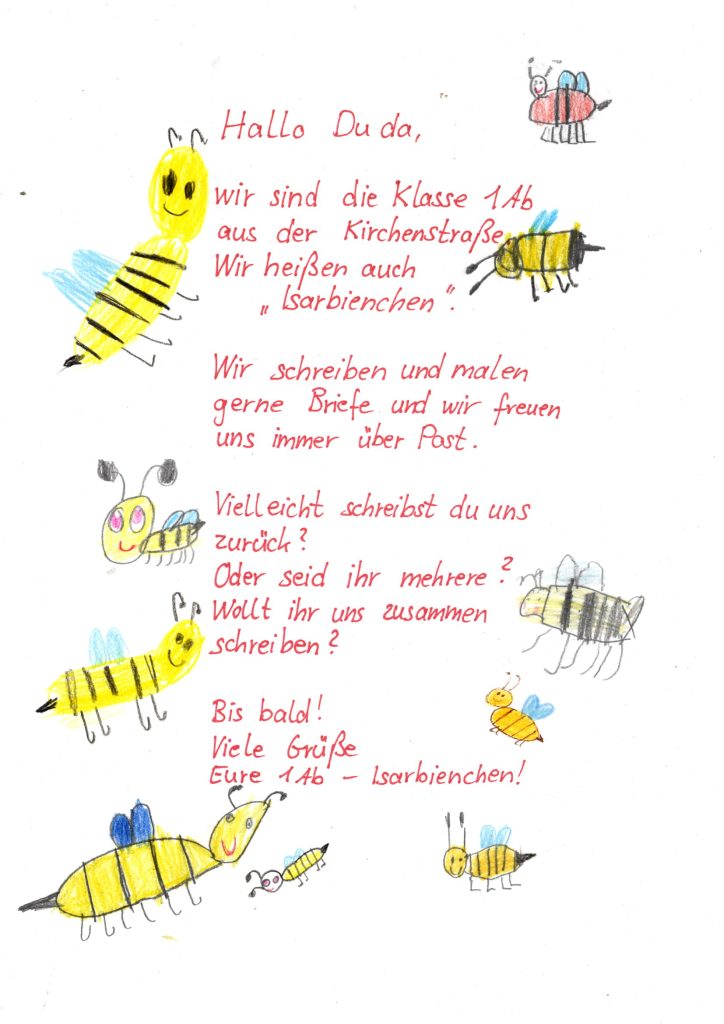 Hallo Du da,
wir sind die Klasse 1Ab
aus der Kirchenstraße.
Wir heißen auch
„Isarbienchen“.
Wir schreiben und malen
gerne Briefe und wir freuen
uns immer über Post.
Vielleicht schreibst du uns
zurück?
Oder seid ihr mehrere?
Wollt ihr uns zusammen
schreiben?
Bis bald!
Viele Grüße
Eure 1Ab – Isarbienchen!